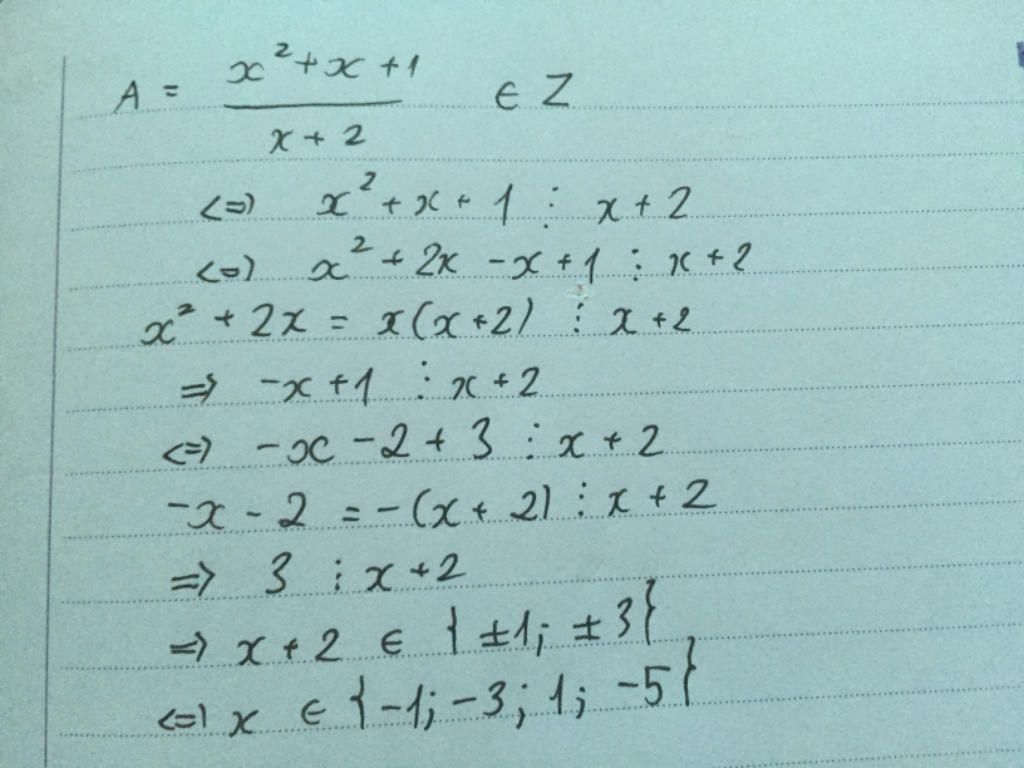 A = x² + x + 1 / x + 2 ∈ Z
<=> x² + x + 1 ⋮ x + 2
<=> x² + 2x - x + 1 ⋮ x + 2
x² + 2x = x(x + 2) ⋮ x + 2
=> -x + 1 ⋮ x + 2
<=> -x - 2 + 3 ⋮ x + 2
-x - 2 = -(x + 2) ⋮ x + 2
=> 3 ⋮ x + 2
=> x + 2 ∈ {±1; ±3}
<=> x ∈ {-1; -3; 1; -5}